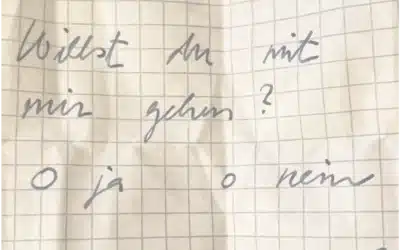 Willst du mit
mir gehen?
O ja o nein